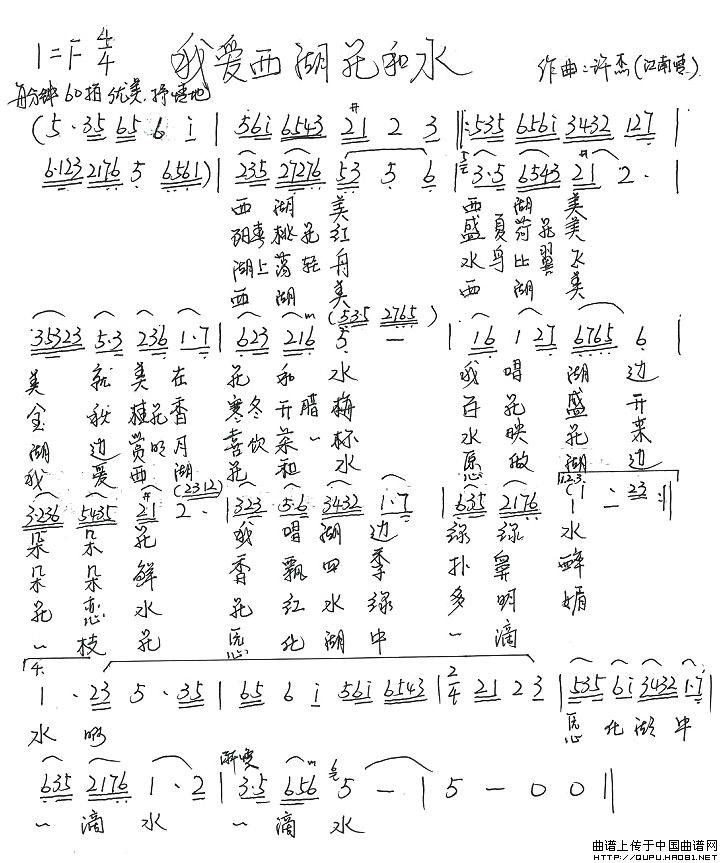 1=F 4/4 我爱西湖花和水 作曲:许杰(江南
每分钟60拍 优美.抒情地
(5·35 65 6 i | 56i 6543 21 2 3 |: 535 656i 3432 127 |
6·123 2176 5 6561) | 235 27276 53 5 6 | 3·5 6543 21 2· |
西 湖 美 西 湖 美
阳春桃花红 盛夏荷花美
湖上荡轻舟 水鸟比翼飞
西 湖 美 西 湖 美
(535 2765)
35323 5·3 236 1·7 | 623 216 5 — | 16 1 27 6765 6 |
美 就 美 在 花 和 水 我 唱 湖 边
金 秋 桂花香 寒冬 开 腊 梅 百 花 盛 开
湖 边 赏明月 喜饮 菜 一 杯 水 映 花 来
我 爱 西 湖 花 和 水 愿做 湖 边
(2312) 1.2.3.
3·236 5435 21 2· | 323 5·6 3432 1·7 | 635 2176 1 — 23 :|
朵 朵 花 我 唱 湖 边 绿 绿 水
朵 朵 鲜 香 飘 四 季 扑 鼻 醉
花 恋 水 花 红 水 绿 多 明 媚
一 枝 花 愿 化 湖 中 一 滴
4.
1 · 23 5 · 35 | 65 6 i 56i 6543 | 2/4 21 23 | 535 6i 3432 1·7 |
水 啊 愿 化 湖 中
渐慢
635 2176 1·2 | 3·5 656 5 — | 5 — 0 0 ||
一 滴 水 一 滴 水
曲谱上传于中国曲谱网
HTTP://QUPU.HAO81.NET